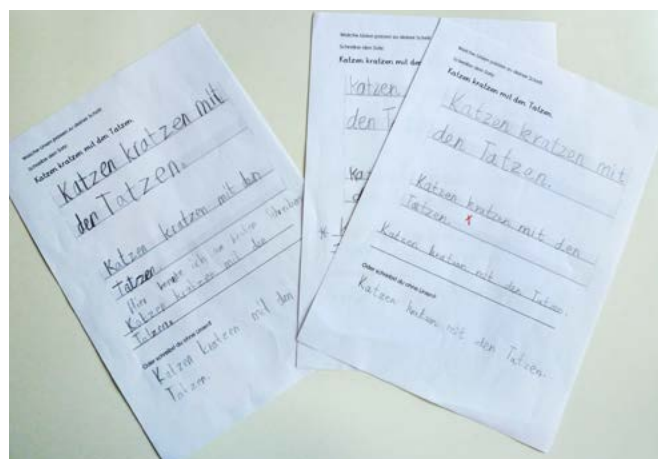 Welche Linien passen zu deiner Schrift
Schreibe den Satz:
Katzen kratzen mit den Tatzen.
Katzen kratzen mit
den Tatzen.
Katzen kratzen mit
Tatzen.
Hier konnte ich am besten schreiben
Katzen kratzen mit den
Tatzen.
Oder schreibst du ohne Linien?
Katzen kratzen mit den
Tatzen.
Welche Linien passen zu deiner Schrift
Schreibe den Satz:
Katzen kratzen mit der
Katzen
den T
Ka
*
Welche Linien passen zu deiner Schrift
Schreibe den Satz:
Katzen kratzen mit den Tatzen.
Katzen kratzen mit
den Tatzen.
Katzen kratzen mit den
Tatzen. x
Katzen kratzen mit den Tatzen.
Oder schreibst du ohne Linien?
Katzen kratzen mit den Tatzen.